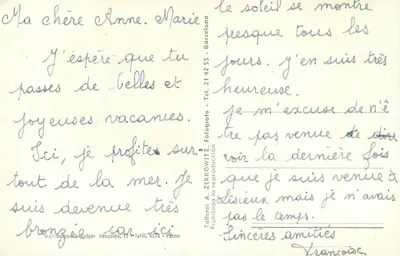 Ma chère Anne. Marie
J'éspère que tu
passes de belles et
joyeuses vacances.
Ici, je profite sur-
tout de la mer. Je
suis devenue très
bronzée car ici
le soleil se montre
presque tous les
jours. J'en suis très
heureuse.
Je m'excuse de n'ê
tre pas venue de dire
voir la dernière fois
que je suis venue à
Lisieux mais je n'avais
pas le temps.
Sincères amitiés
Françoise.
Talleres A. ZERKOWITZ, Fotógrafo - Tel. 21 42 55 - Barcelona
Prohibida la reproducción